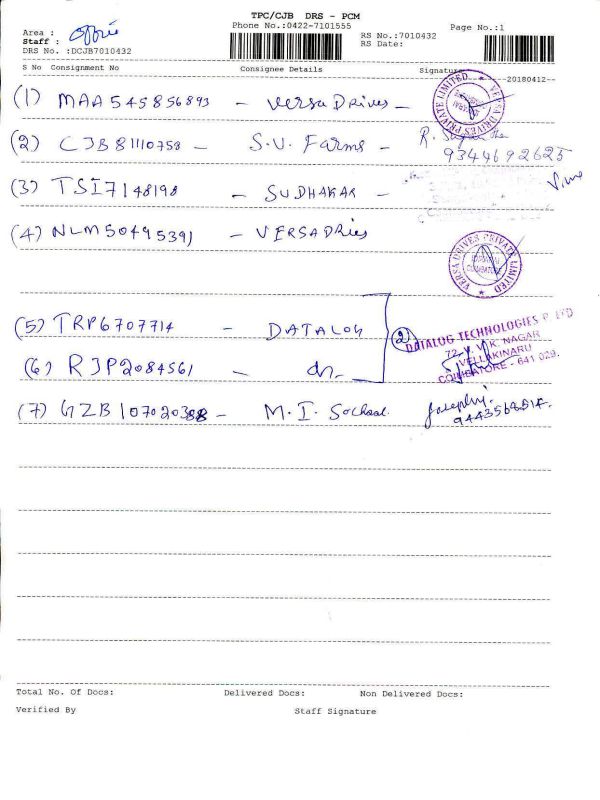 TPC/CJB DRS - PCM
Phone No.:0422-7101555
Page No.:1
Area :
Staff :
DRS No. :DCJB7010432
RS No.:7010432
RS Date:
S No Consignment No Consignee Details Signature
--20180412--
(1) MAA545856893 - Versa Drives -
VERSA DRIVES PRIVATE LIMITED
(2) CJB81110758 - S.V. Farms - R.
9344692625
(3) TSI7148198 - SUDHAKAR -
(4) NLM50495391 - VERSADRIES
VERSA DRIVES PRIVATE LIMITED
COIMBATORE
(5) TRP6707714 - DATALOG
(2)
DATALOG TECHNOLOGIES P LTD
72, V.K. NAGAR
VELLAKINARU
COIMBATORE - 641 029.
(6) RJP2084561 - do.
(7) GZB107020388 - M.I. School
Total No. Of Docs: Delivered Docs: Non Delivered Docs:
Verified By Staff Signature